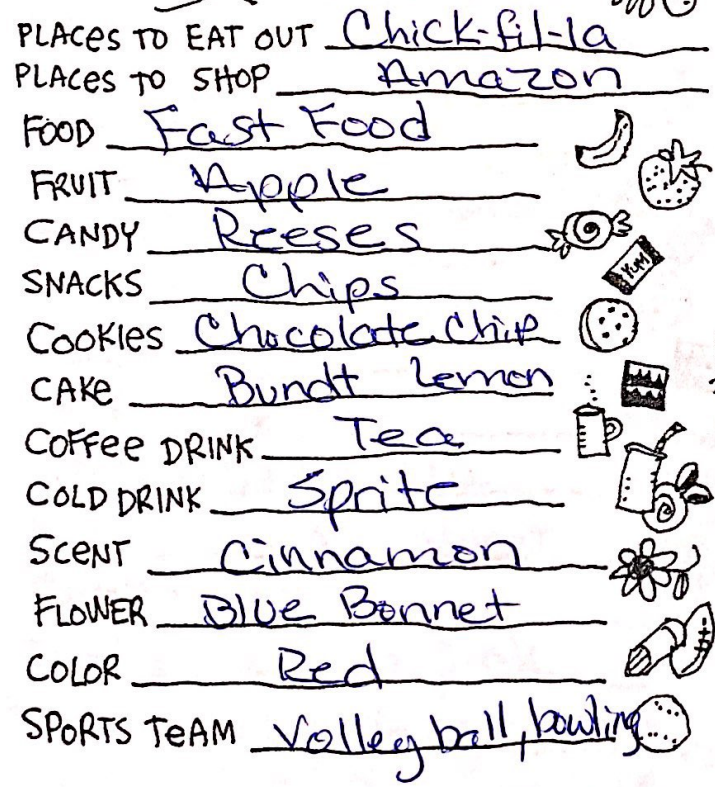 PLACES TO EAT OUT Chick-fil-la
PLACES TO SHOP Amazon
FOOD Fast Food
FRUIT Apple
CANDY Reeses
SNACKS Chips
YUM
COOKIES Chocolate Chip
CAKE Bundt Lemon
COFFEE DRINK Tea
COLD DRINK Sprite
SCENT Cinnamon
FLOWER Blue Bonnet
COLOR Red
SPORTS TEAM Volley ball, bowling